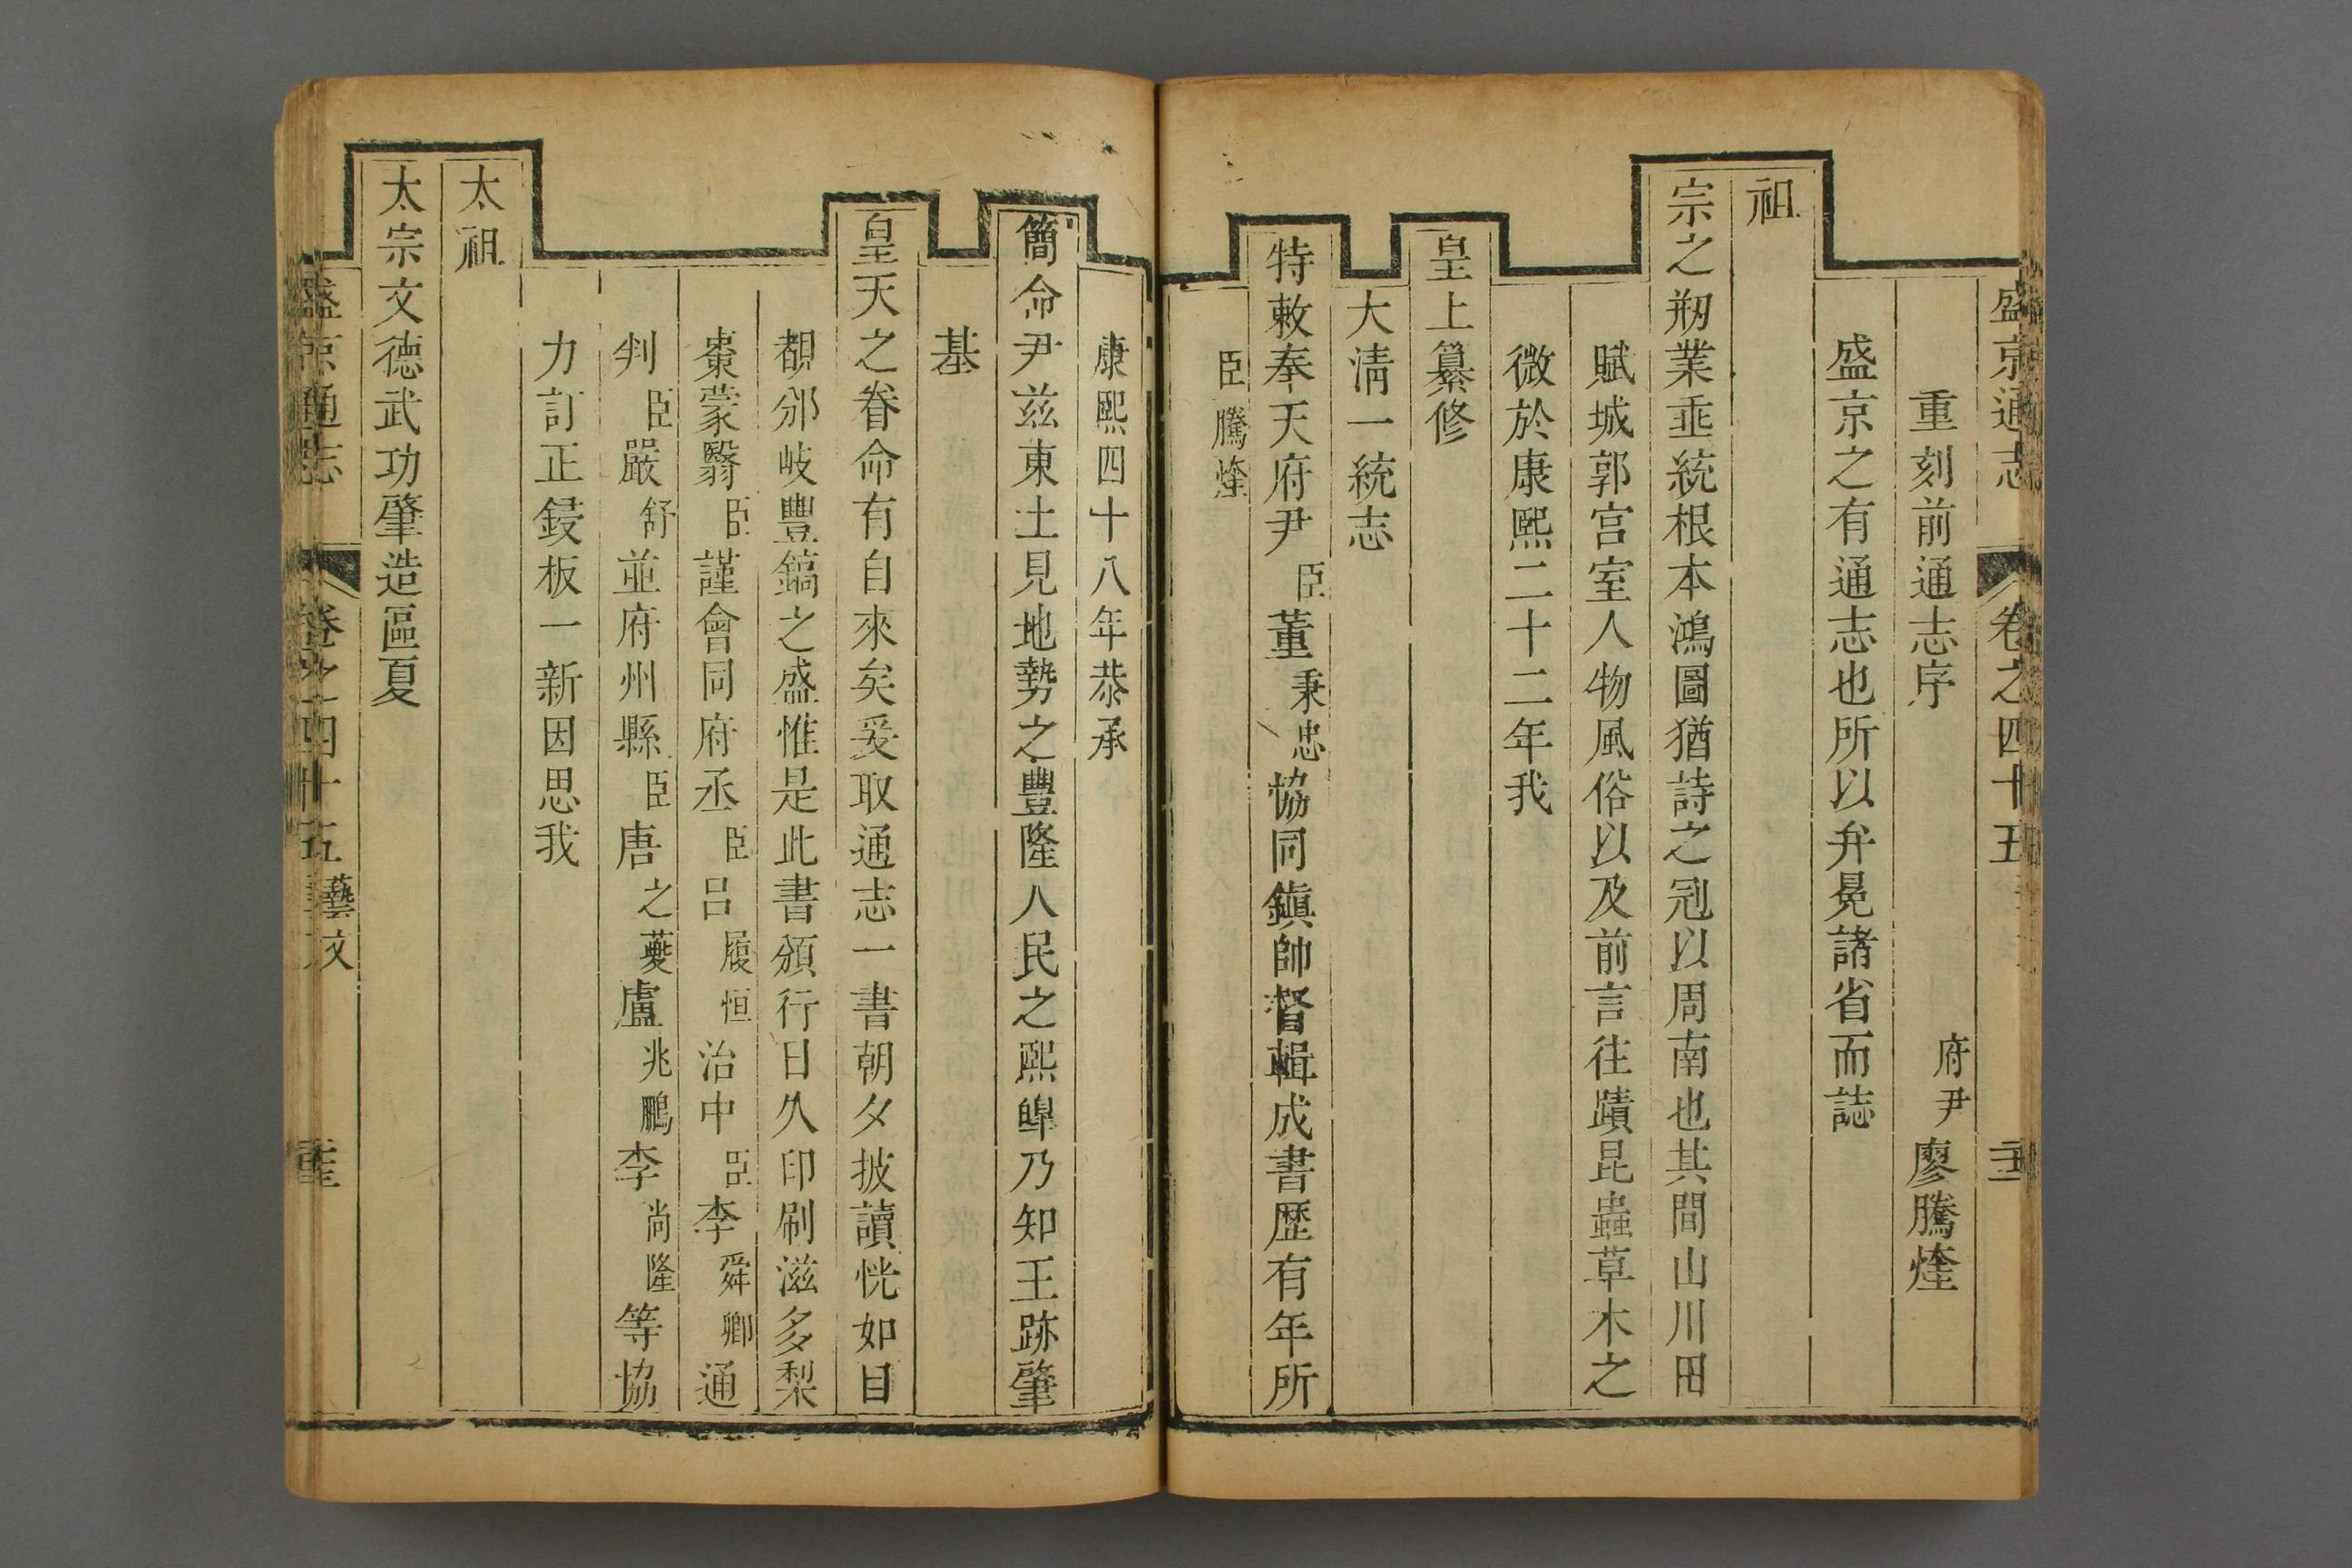 盛京通志 卷之四十五
重刻前通志序 府尹廖騰煃
盛京之有通志也所以弁冕諸省而誌
祖
宗之剏業垂統根本鴻圖猶詩之冠以周南也其間山川田
賦城郭宮室人物風俗以及前言往蹟昆蟲草木之
微於康熙二十二年我
皇上纂修
大淸一統志
特敕奉天府尹臣董秉忠協同鎭帥督輯成書歷有年所
臣騰煃
康熙四十八年恭承
簡命尹兹東土見地勢之豐隆人民之熙皥乃知王跡肇
基
皇天之眷命有自來矣爰取通志一書朝夕披讀恍如目
覩邠岐豐鎬之盛惟是此書頒行日久印刷滋多梨
棗蒙翳臣謹會同府丞臣呂履恒治中臣李舜卿通
判臣嚴舒並府州縣臣唐之夔盧兆鵬李尚隆等協
力訂正鋟板一新因思我
太祖
太宗文德武功肇造區夏
盛京通志 卷之四十五 藝文